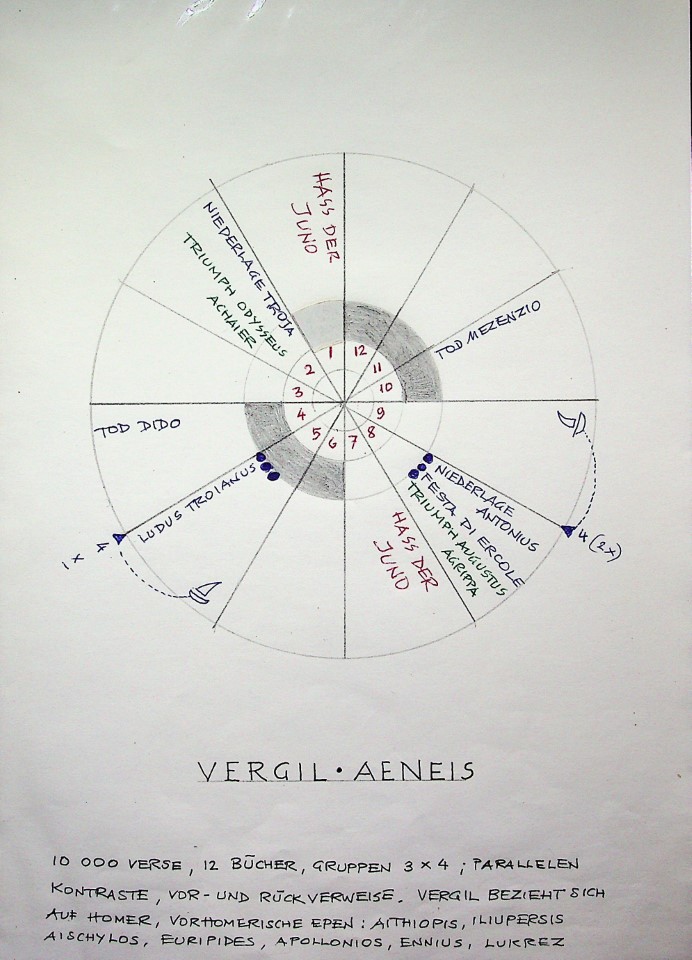 HASS DER
JUNO
NIEDERLAGE TROJA
TRIUMPH ODYSSEUS
ACHAIER
TOD MEZENZIO
1
12
2
11
3
10
4
9
5
8
6
7
TOD DIDO
LUDUS TROIANUS
1 x 4
NIEDERLAGE
ANTONIUS
FESTA DI ERCOLE
TRIUMPH AUGUSTUS
AGRIPPA
4 (2x)
HASS DER
JUNO
VERGIL · AENEIS
10 000 VERSE, 12 BÜCHER, GRUPPEN 3 x 4 ; PARALLELEN
KONTRASTE, VOR- UND RÜCKVERWEISE. VERGIL BEZIEHT SICH
AUF HOMER, VORHOMERISCHE EPEN : AITHIOPIS, ILIUPERSIS
AISCHYLOS, EURIPIDES, APOLLONIOS, ENNIUS, LUKREZ